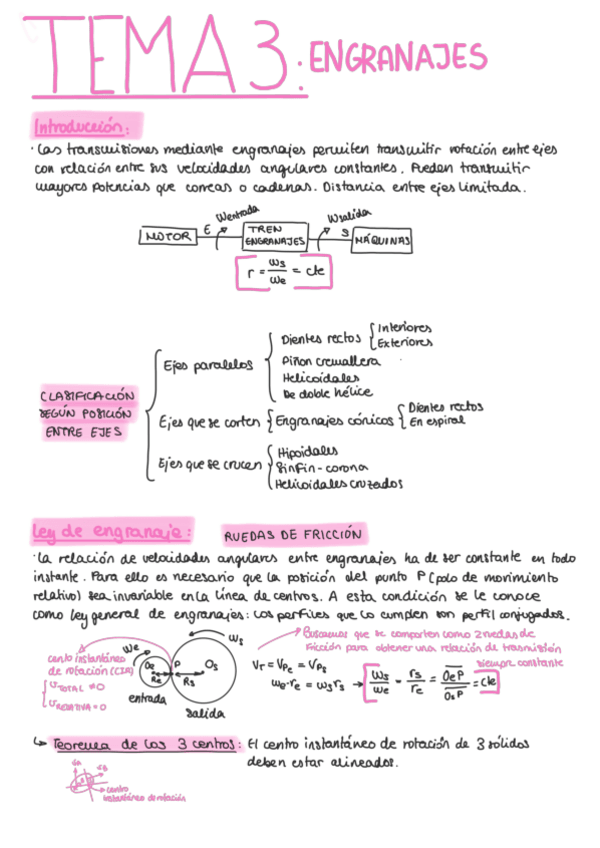 TEMA 3. ENGRANAJES
Introducción:
· Las transmisiones mediante engranajes permiten transmitir rotación entre ejes
con relación entre sus velocidades angulares constantes. Pueden transmitir
mayores potencias que correas o cadenas. Distancia entre ejes limitada.
Wentrada Wsalida
MOTOR E TREN ENGRANAJES S MÁQUINAS
r = ws/we = cte
CLASIFICACIÓN
SEGÚN POSICIÓN
ENTRE EJES
Ejes paralelos
Dientes rectos { Interiores
Exteriores
Piñon cremallera
Helicoidales
De doble hélice
Ejes que se corten { Engranajes cónicos { Dientes rectos
En espiral
Ejes que se crucen
Hipoidales
Sinfin-corona
Helicoidales cruzados
Ley de engranaje: RUEDAS DE FRICCIÓN
· La relación de velocidades angulares entre engranajes ha de ser constante en todo
instante. Para ello es necesario que la posición del punto P (polo de movimiento
relativo) sea invariable en la línea de centros. A esta condición se le conoce
como ley general de engranajes: Los perfiles que lo cumplen son perfil conjugados.
Buscamos que se comporten como 2 ruedas de
fricción para obtener una relación de trasmisión
siempre constante
cento instantáneo
de rotación (CIR)
VTOTAL ≠ 0
VRELATIVA = 0
we
ws
Oe
P
Os
Re
Rs
entrada
salida
Vr = VPe = VPs
we·re = ws rs → ws/we - rs/re = OeP/OsP = cte
↳ Teorema de los 3 centros: El centro instantáneo de rotación de 3 sólidos
deben estar alineados.
centro
instantáneo de rotación